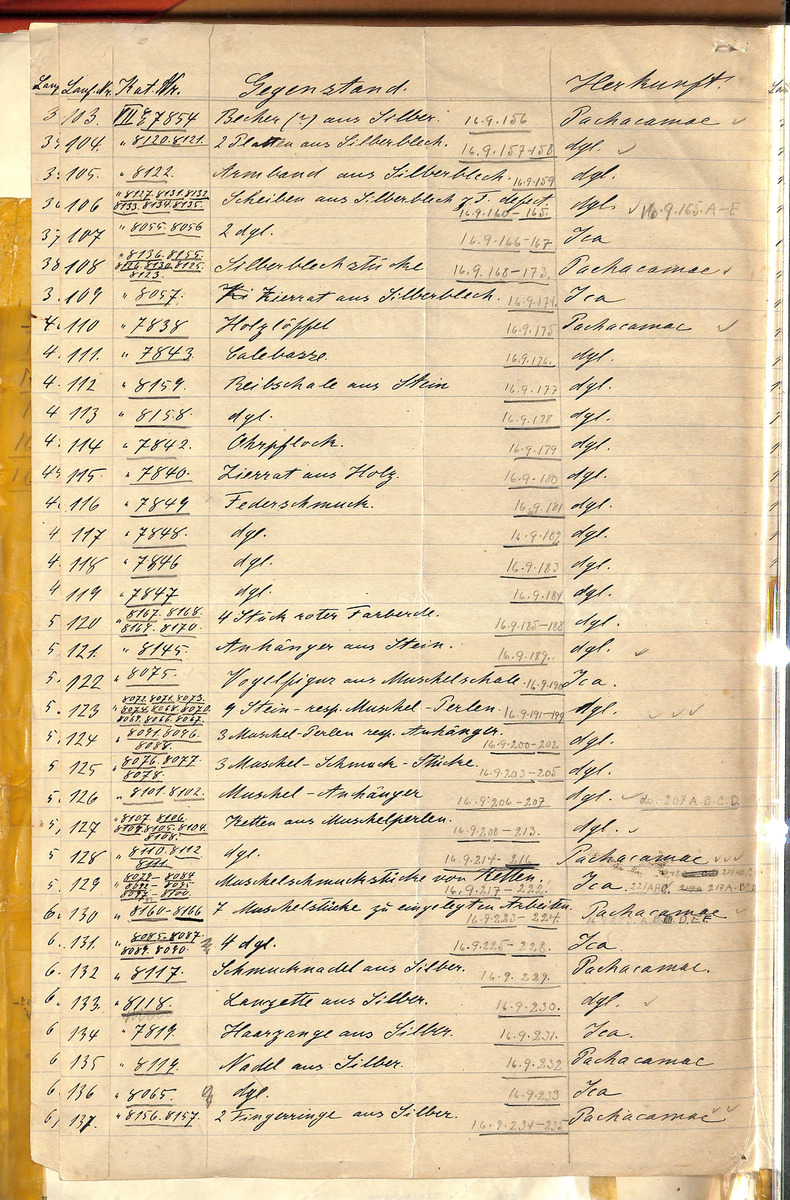 Lauf. Nr. Kat. Nr. Gegenstand. Herkunft.
103. 7854 Becher (?) aus Silber. 16.9.156 Pachacamac
104. " 8120. 8121. 2 Platten aus Silberblech. 16.9.157-158 dgl.
105. " 8122. Armband aus Silberblech. 16.9.159 dgl.
106 " 8127. 8131. 8132. 8133. 8134. 8135. Scheiben aus Silberblech z. T. defect. 16.9.160-165. dgl. 16.9.165.A-E
107 " 8055. 8056 2 dgl. 16.9.166-167 Ica
108 " 8136. 8155. 8126. 8130. 8125. 8123. Silberblechstücke 16.9.168-173. Pachacamac
109 " 8057. Zierrat aus Silberblech. 16.9.174. Ica
110 " 7838 Holzlöffel 16.9.175 Pachacamac
111. " 7843 Calebasse. 16.9.176. dgl.
112 " 8159. Reibschale aus Stein 16.9.177 dgl.
113 " 8158. dgl. 16.9.178 dgl.
114 " 7842. Ohrpflock. 16.9.179 dgl.
115. " 7840. Zierrat aus Holz. 16.9.180 dgl.
116 " 7849 Federschmuck. 16.9.181 dgl.
117 " 7848. dgl. 16.9.182 dgl.
118 " 7846 dgl. 16.9.183 dgl.
119 " 7847 dgl. 16.9.184 dgl.
120 " 8167. 8168. 8169. 8170. 4 Stück roter Farberde. 16.9.185-188 dgl.
121. " 8145. Anhänger aus Stein. 16.9.189. dgl.
122 " 8075. Vogelfigur aus Muschelschale. 16.9.190 Ica.
123 " 8072. 8071. 8073. 8074. 8068. 8070. 8069. 8066. 8067. 9 Stein- resp. Muschel-Perlen. 16.9.191-199 dgl.
124 " 8091. 8096. 8088. 3 Muschel-Perlen resp. Anhänger. 16.9.200-202 dgl.
125 " 8076. 8077. 8078. 3 Muschel-Schmuck-Stücke. 16.9.203-205 dgl.
126 " 8101. 8102. Muschel-Anhänger 16.9.206-207 dgl. do. 207 A.B.C.D.
127 " 8107 8106. 8109. 8105. 8104. 8108. Ketten aus Muschelperlen. 16.9.208-213. dgl.
128 " 8110. 8112 8111. dgl. 16.9.214-216 Pachacamac
129 Muschelschmuckstücke von Ketten. 16.9.217-222. Ica
130 " 8160-8166 7 Muschelstücke zu eingelegten Arbeiten. 16.9.223-224. Pachacamac
131. " 8085. 8087. 8089. 8090. 4 dgl. 16.9.225-228. Ica.
132 " 8117. Schmucknadel aus Silber. 16.9.229. Pachacamac.
133. " 8118. Lanzette aus Silber. 16.9.230. dgl.
134 " 7819 Haarzange aus Silber. 16.9.231. Ica.
135 " 8119. Nadel aus Silber. 16.9.232 Pachacamac
136 " 8065. dgl. 16.9.233 Ica
137. " 8156. 8157. 2 Fingerringe aus Silber. 16.9.234-235 Pachacamac